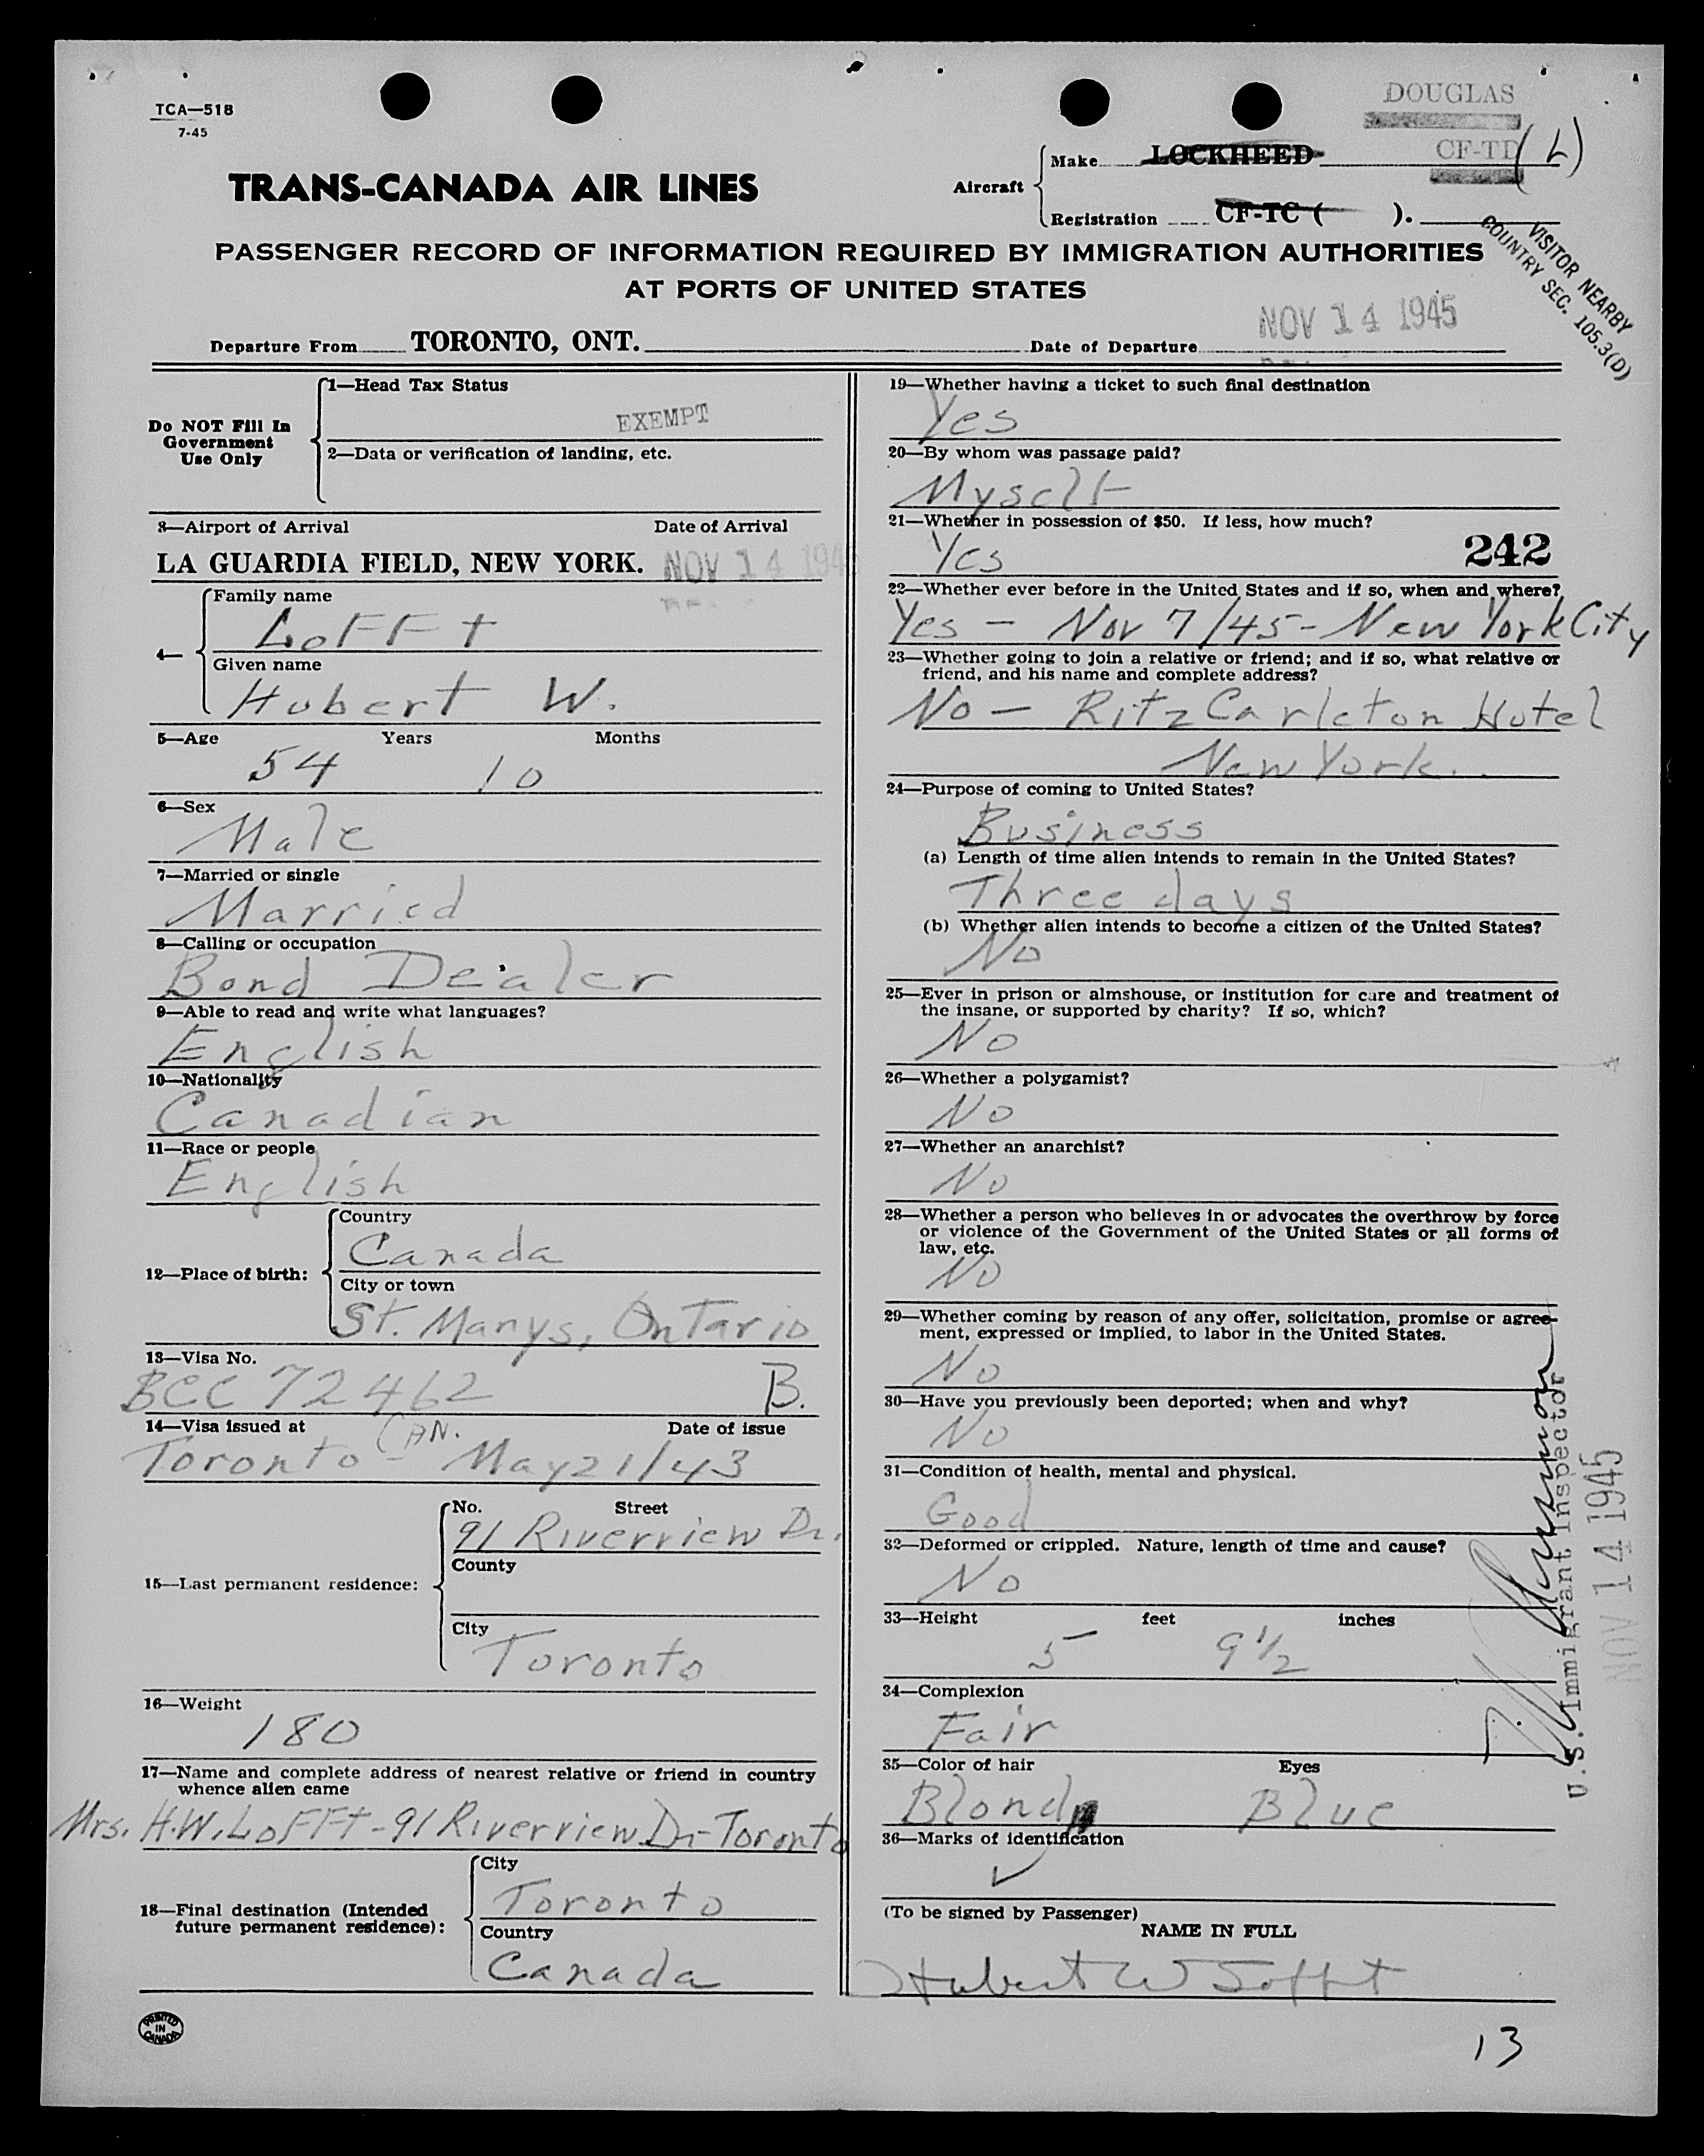 TCA—518
7-45
DOUGLAS
Make LOCKHEED CF-TD (L)
TRANS-CANADA AIR LINES
Aircraft
Registration CF-TC ( ).
PASSENGER RECORD OF INFORMATION REQUIRED BY IMMIGRATION AUTHORITIES
AT PORTS OF UNITED STATES
VISITOR NEARBY
COUNTRY SEC. 105.3(D)
Departure From TORONTO, ONT. Date of Departure NOV 14 1945
Do NOT Fill In
Government
Use Only
1—Head Tax Status
EXEMPT
2—Data or verification of landing, etc.
3—Airport of Arrival Date of Arrival
LA GUARDIA FIELD, NEW YORK. NOV 14 194
4—
Family name
LoFFt
Given name
Hubert W.
5—Age Years Months
54 10
6—Sex
Male
7—Married or single
Married
8—Calling or occupation
Bond Dealer
9—Able to read and write what languages?
English
10—Nationality
Canadian
11—Race or people
English
12—Place of birth:
Country
Canada
City or town
St. Marys, Ontario
13—Visa No.
BCC 72462 B.
14—Visa issued at Date of issue
Toronto CAN. - May 21/43
15—Last permanent residence:
No. Street
91 Riverview Dr.
County
City
Toronto
16—Weight
180
17—Name and complete address of nearest relative or friend in country
whence alien came
Mrs. H.W. LoFFt - 91 Riverview Dr - Toronto
18—Final destination (Intended
future permanent residence):
City
Toronto
Country
Canada
PRINTED
IN
CANADA
19—Whether having a ticket to such final destination
Yes
20—By whom was passage paid?
Myself
21—Whether in possession of $50. If less, how much?
Yes 242
22—Whether ever before in the United States and if so, when and where?
Yes — Nov 7/45 - New York City
23—Whether going to join a relative or friend; and if so, what relative or
friend, and his name and complete address?
No — Ritz Carleton Hotel
New York.
24—Purpose of coming to United States?
Business
(a) Length of time alien intends to remain in the United States?
Three days
(b) Whether alien intends to become a citizen of the United States?
No
25—Ever in prison or almshouse, or institution for care and treatment of
the insane, or supported by charity? If so, which?
No
26—Whether a polygamist?
No
27—Whether an anarchist?
No
28—Whether a person who believes in or advocates the overthrow by force
or violence of the Government of the United States or all forms of
law, etc.
No
29—Whether coming by reason of any offer, solicitation, promise or agree-
ment, expressed or implied, to labor in the United States.
No
30—Have you previously been deported; when and why?
No
31—Condition of health, mental and physical.
Good
32—Deformed or crippled. Nature, length of time and cause?
No
33—Height feet inches
5 9½
34—Complexion
Fair
35—Color of hair Eyes
Blond Blue
36—Marks of identification
✓
(To be signed by Passenger)
NAME IN FULL
Hubert W Lofft
U.S. Immigrant Inspector
NOV 14 1945
13